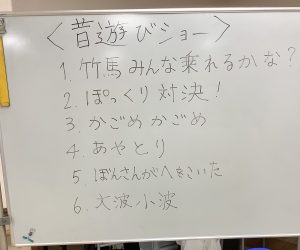 〈昔遊びショー〉
1. 竹馬みんな乗れるかな?
2. ぽっくり対決!
3. かごめかごめ
4. あやとり
5. ぼんさんがへをこいた
6. 大波小波